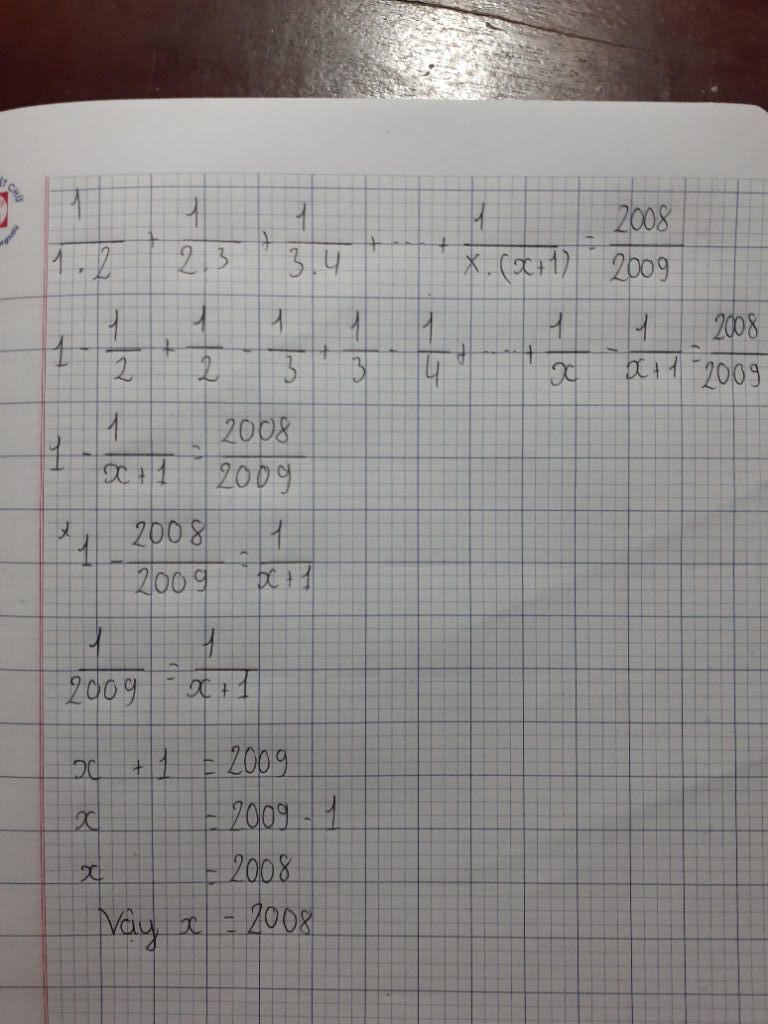 1/1.2 + 1/2.3 + 1/3.4 + ... + 1/x.(x+1) = 2008/2009
1 - 1/2 + 1/2 - 1/3 + 1/3 - 1/4 + ... + 1/x - 1/x+1 = 2008/2009
1 - 1/x+1 = 2008/2009
1 - 2008/2009 = 1/x+1
1/2009 = 1/x+1
x + 1 = 2009
x = 2009 - 1
x = 2008
Vậy x = 2008